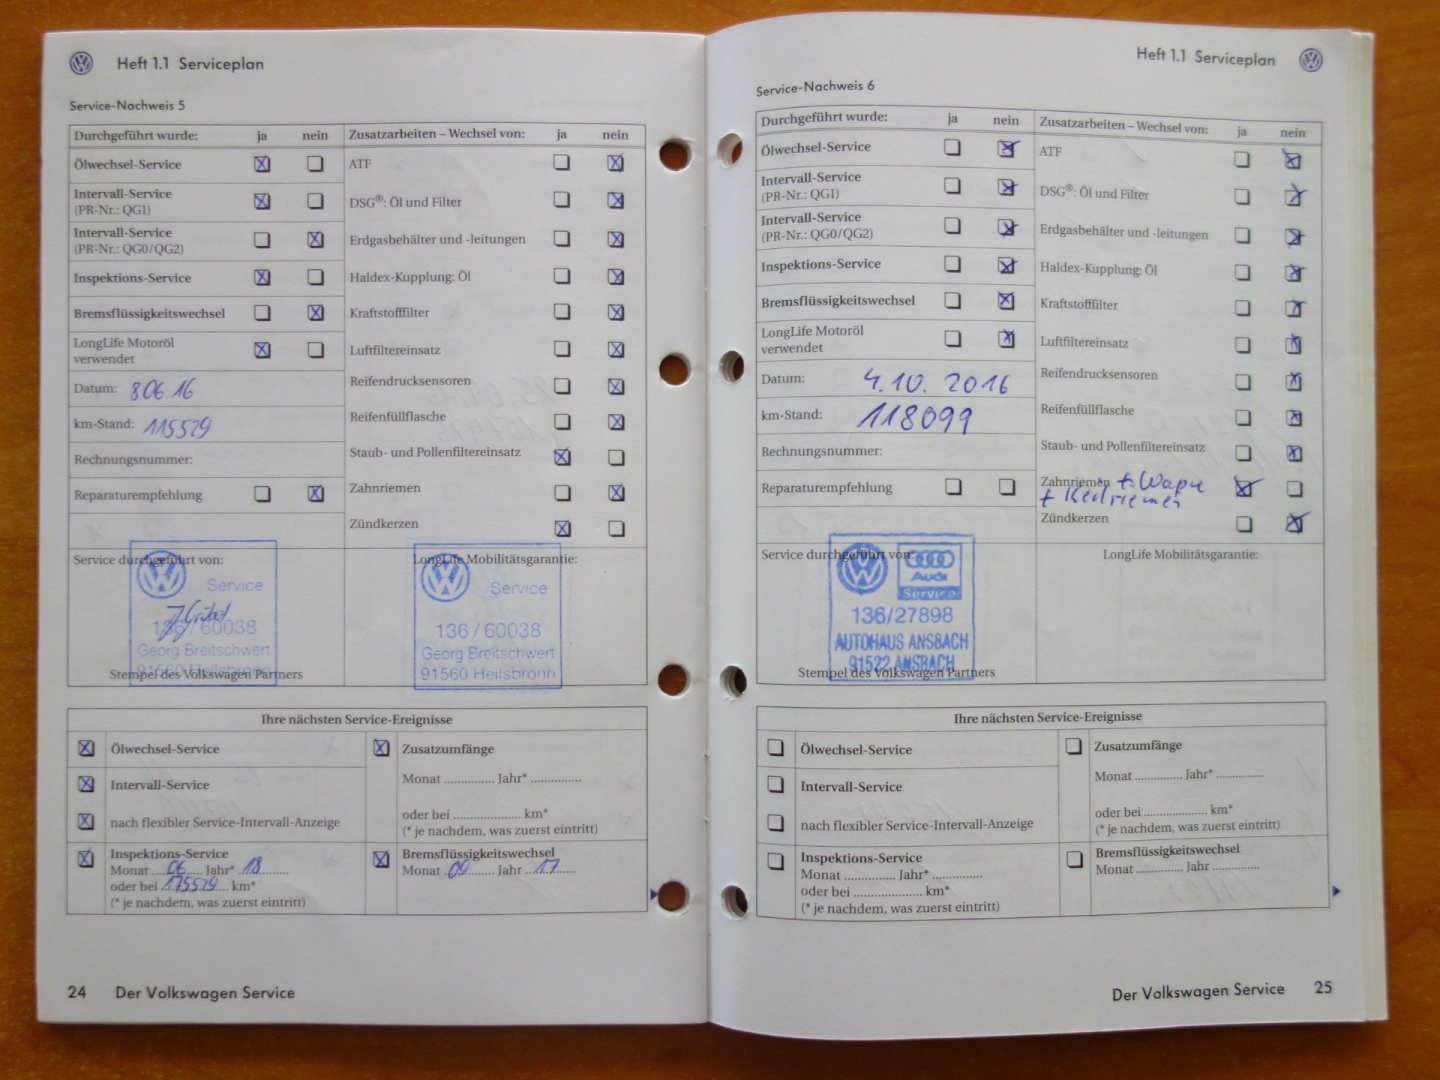 Heft 1.1 Serviceplan
Service-Nachweis 5
Durchgeführt wurde: ja nein
Ölwechsel-Service
Intervall-Service
(PR-Nr.: QG1)
Intervall-Service
(PR-Nr.: QG0/QG2)
Inspektions-Service
Bremsflüssigkeitswechsel
LongLife Motoröl
verwendet
Datum: 8.06.16
km-Stand: 115529
Rechnungsnummer:
Reparaturempfehlung
Zusatzarbeiten – Wechsel von: ja nein
ATF
DSG®: Öl und Filter
Erdgasbehälter und -leitungen
Haldex-Kupplung: Öl
Kraftstofffilter
Luftfiltereinsatz
Reifendrucksensoren
Reifenfüllflasche
Staub- und Pollenfiltereinsatz
Zahnriemen
Zündkerzen
Service durchgeführt von:
Service
136/60038
Georg Breitschwert
91560 Heilsbronn
Stempel des Volkswagen Partners
LongLife Mobilitätsgarantie:
Service
136/60038
Georg Breitschwert
91560 Heilsbronn
Ihre nächsten Service-Ereignisse
Ölwechsel-Service
Intervall-Service
nach flexibler Service-Intervall-Anzeige
Inspektions-Service
Monat 06 Jahr* 18
oder bei 175529 km*
(* je nachdem, was zuerst eintritt)
Zusatzumfänge
Monat ............... Jahr* ...............
oder bei .................... km*
(* je nachdem, was zuerst eintritt)
Bremsflüssigkeitswechsel
Monat 09 Jahr 17
24 Der Volkswagen Service
Heft 1.1 Serviceplan
Service-Nachweis 6
Durchgeführt wurde: ja nein
Ölwechsel-Service
Intervall-Service
(PR-Nr.: QG1)
Intervall-Service
(PR-Nr.: QG0/QG2)
Inspektions-Service
Bremsflüssigkeitswechsel
LongLife Motoröl
verwendet
Datum: 4.10.2016
km-Stand: 118099
Rechnungsnummer:
Reparaturempfehlung
Zusatzarbeiten – Wechsel von: ja nein
ATF
DSG®: Öl und Filter
Erdgasbehälter und -leitungen
Haldex-Kupplung: Öl
Kraftstofffilter
Luftfiltereinsatz
Reifendrucksensoren
Reifenfüllflasche
Staub- und Pollenfiltereinsatz
Zahnriemen + Wapu
+ Keilriemen
Zündkerzen
Service durchgeführt von:
Audi
Service
136/27898
AUTOHAUS ANSBACH
91522 ANSBACH
Stempel des Volkswagen Partners
LongLife Mobilitätsgarantie:
Ihre nächsten Service-Ereignisse
Ölwechsel-Service
Intervall-Service
nach flexibler Service-Intervall-Anzeige
Inspektions-Service
Monat ............... Jahr* ...............
oder bei .................... km*
(* je nachdem, was zuerst eintritt)
Zusatzumfänge
Monat ............... Jahr* ...............
oder bei .................... km*
(* je nachdem, was zuerst eintritt)
Bremsflüssigkeitswechsel
Monat ............... Jahr ...............
Der Volkswagen Service 25